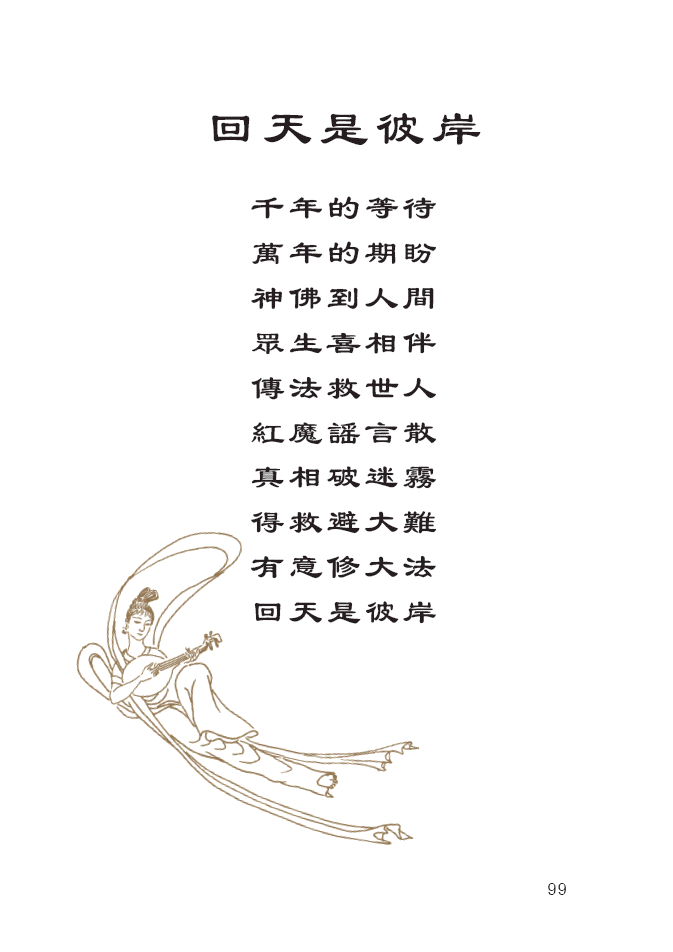 回天是彼岸
千年的等待
萬年的期盼
神佛到人間
眾生喜相伴
傳法救世人
紅魔謠言散
真相破迷霧
得救避大難
有意修大法
回天是彼岸
99